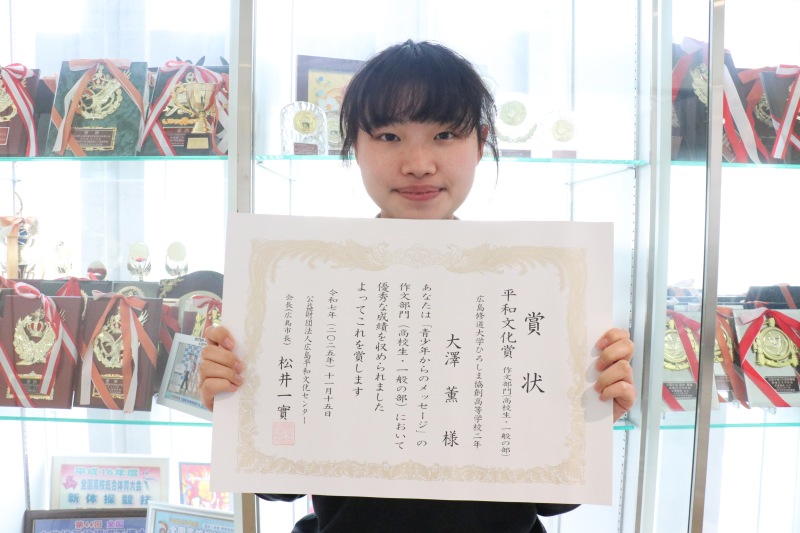 賞状
平和文化賞 作文部門(高校生・一般の部)
広島修道大学ひろしま協創高等学校二年
大澤 薫 様
あなたは「青少年からのメッセージ」の
作文部門(高校生・一般の部)において
優秀な成績を収められました
よってこれを賞します
令和七年(二〇二五年)十一月十五日
公益財団法人広島平和文化センター
会長(広島市長) 松井一實
平成16年度
全国高校総合体育大会
新体操競技
第44回 全国